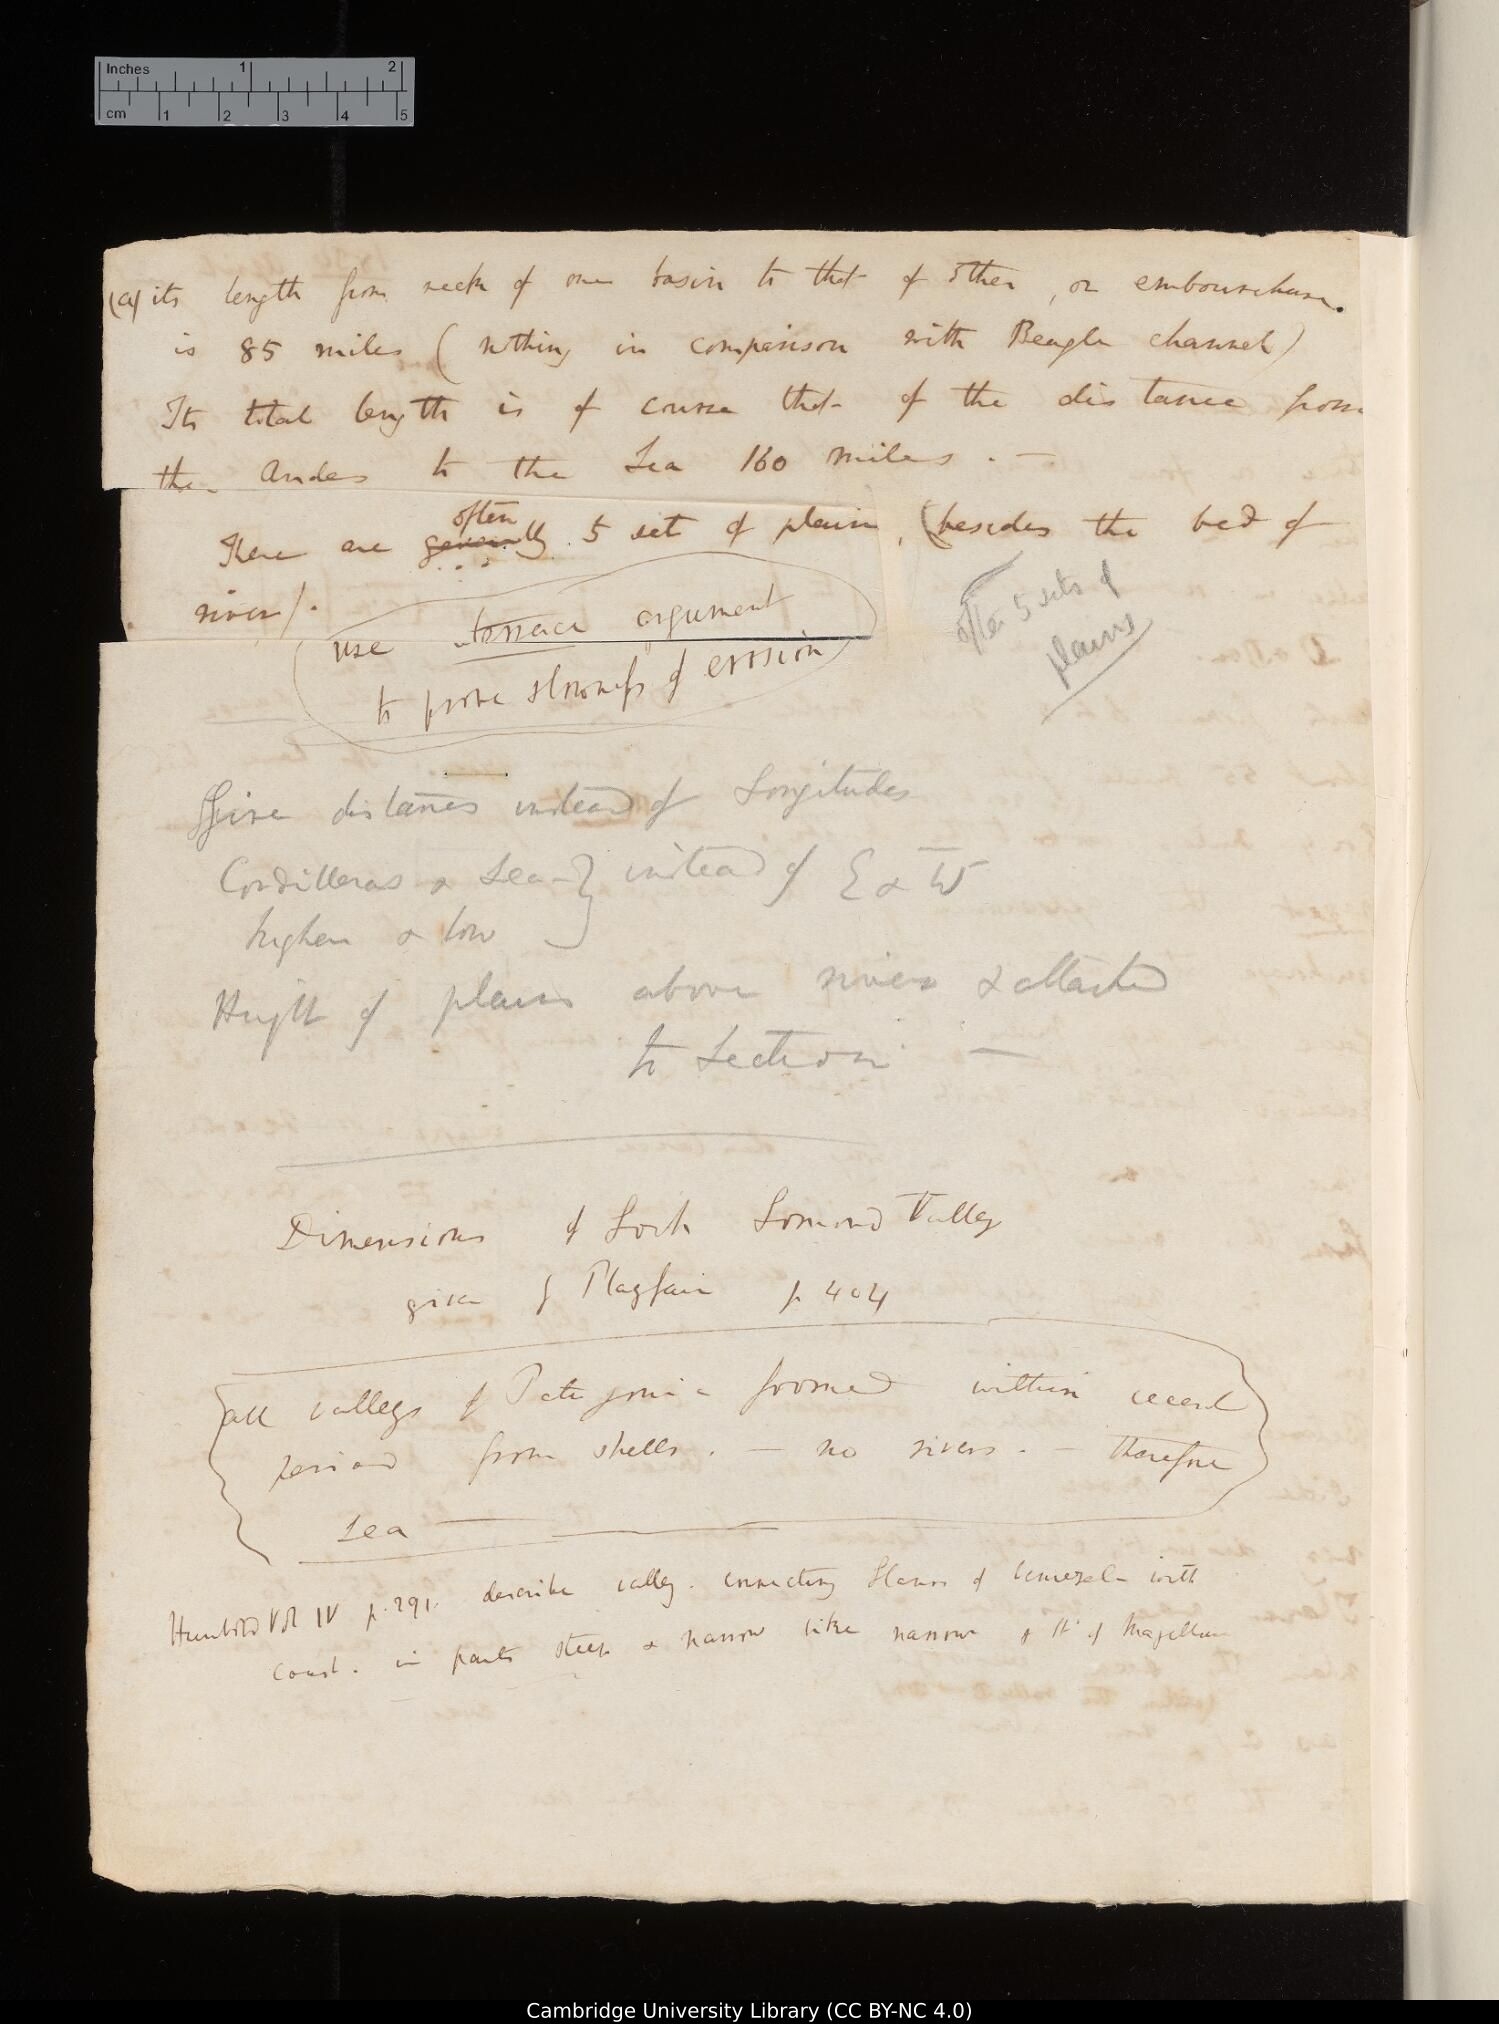 Inches 1 2
cm 1 2 3 4 5
(a) its length from neck of one basin to that of other, or embourchure.
is 85 miles (nothing in comparison with Beagle channel)
Its total length is of course that of the distance from
the Andes to the Sea 160 miles . —
often
There are generally 5 set of plain, (besides the bed of
river).
often 5 sets of
plains
use terrace argument
to prove slowness of erosion
Give distances instead of Longitudes
Cordilleras & Sea } instead of E & W
higher & low
Hight of plains above river & attached
to Section —
Dimensions of Loch Lomond Valley
given of Playfair p 404
all valleys of Patagonia formed within recent
period from shells . — no rivers . — therefore
sea
Humboldt Vol IV p. 291. describe valley. connecting Llanos of Venezuela with
coast. in parts steep & narrow like narrow of St. of Magellan
Cambridge University Library (CC BY-NC 4.0)